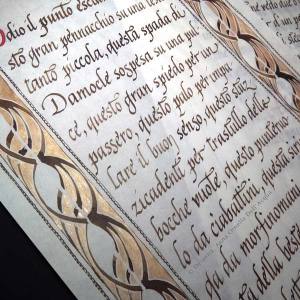 Odio il punto escla
sto gran pennacchio su una te
tanto piccola, questa spada di
Damocle sospesa su una pul
ce, questo gran spiedo per un
passero, questo palo per impa
lare il buon senso, questo stuz
zicadenti pel trastullo delle
bocche vuote, questo punteruo
lo da ciabattini, questa sirin
ga da morfinomani
della beste
vedo due